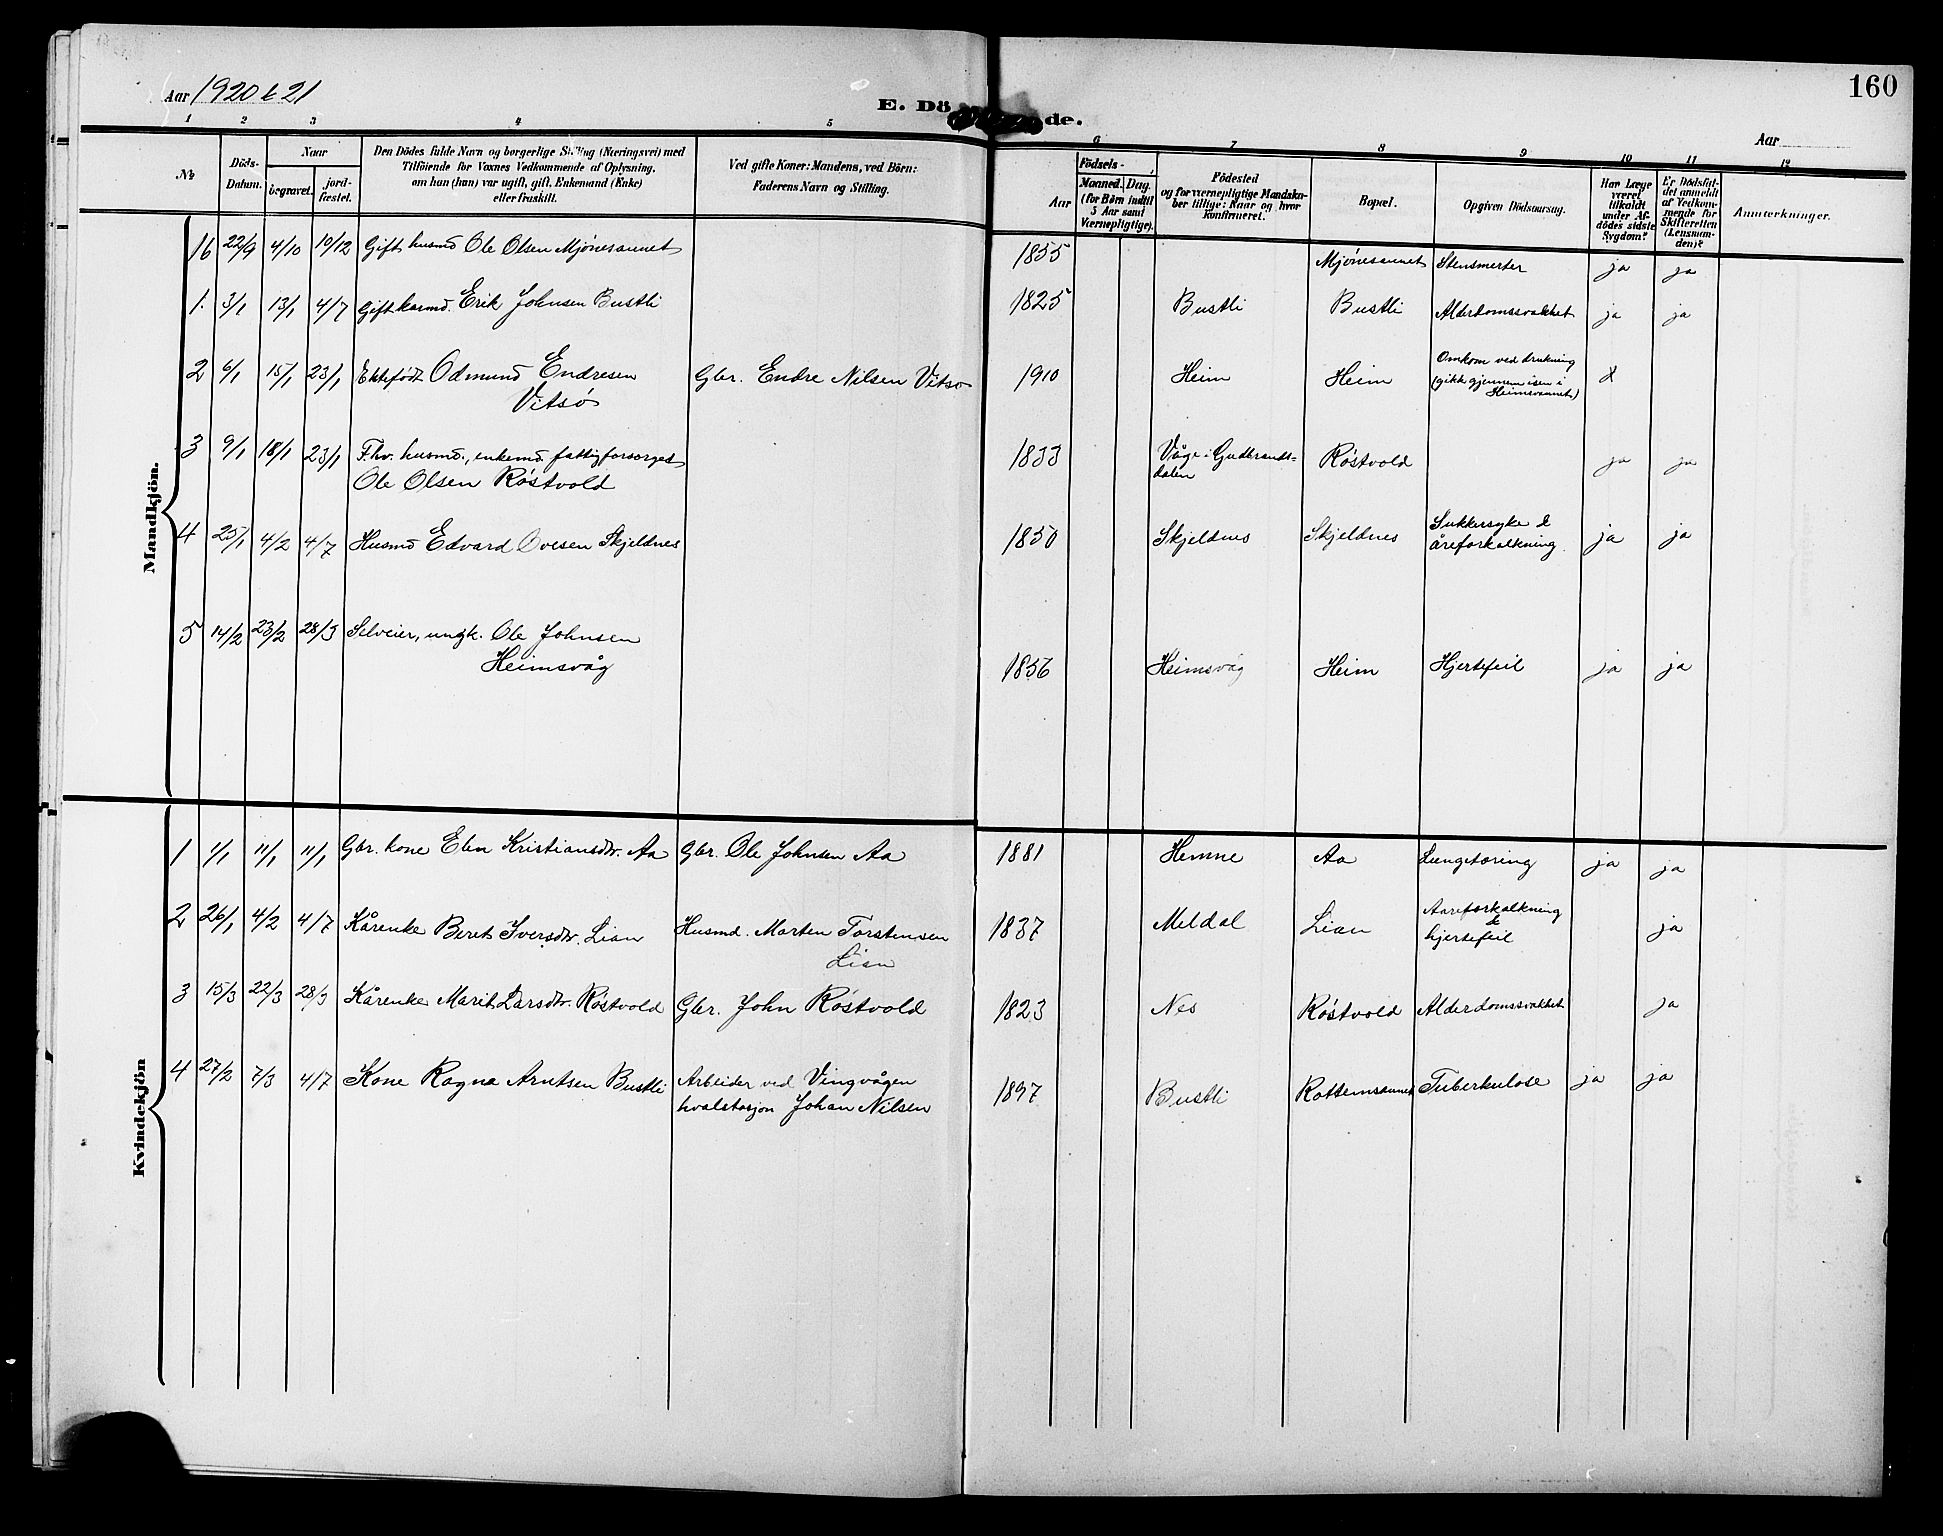 Aar 1920 & 21
E. Dö de.
160
Aar
1 2 3 4 5 6 7 8 9 10 11 12
No
Döds-
Datum.
Naar
begravet.
jord-
fæstet.
Den Dödes fulde Navn og borgerlige Stilling (Næringsvei) med
Tilföiende for Voxnes Vedkommende af Oplysning,
om han (hun) var ugift, gift, Enkemand (Enke)
eller fraskilt.
Ved gifte Koner: Mandens, ved Börn:
Faderens Navn og Stilling.
Födsels-
Aar
Maaned. Dag.
(for Börn indtil
5 Aar samt
Værnepligtige).
Födested
og for værnepligtige Mandska-
ber tillige: Naar og hvor
konfirmeret.
Bopæl.
Opgiven Dödsaarsag.
Har Læge
været
tilkaldt
under Af-
dödes sidste
Sygdom?
Er Dödsfal-
det anmeldt
af Vedkom-
mende for
Skifteretten
(Lensman-
den)?
Anmærkninger.
Mandkjön.
16 22/9 4/10 19/12 Gift husmd Ole Olsen Mjönesaunet 1855 Mjönesaunet Stensmerter ja ja
1. 3/1 13/1 4/7 Gift kaarmd. Erik Johnsen Bustli 1825 Bustli Bustli Alderdomssvakhet ja ja
2 6/1 15/1 23/1 Ektefödt Odmund Endresen Gbr. Endre Nilsen Vitsø 1910 Heim Heim Omkom ved drukning
Vitsø (gikk gjennem isen i
Heimsvannet)
3 9/1 18/1 23/1 F.hv. husmd., enkemd. fattigforsørget 1833 Våge i Gudbrands- Röstvold ja ja
Ole Olsen Röstvold dalen
4 25/1 4/2 4/7 Husmd Edvard Ovesen Skjeldnes 1850 Skjeldnes Skjeldnes Sukkersyke & ja ja
åreforkalkning.
5 14/2 23/2 28/3 Selveier, ungk. Ole Johnsen
Heimsvåg 1856 Heimsvåg Heim Hjertefeil ja ja
Kvindekjön
1 1/1 11/1 11/1 Gbr. kone Elen Kristiansdtr. Aa Gbr. Ole Johnsen Aa 1881 Hemne Aa Lungetæring ja ja
2 26/1 4/2 4/7 Kårenke Beret Iversdtr. Lian Husmd. Morten Torstensen 1837 Meldal Lian Aareforkalkning ja
Lian & hjertefeil
3 15/3 22/3 28/3 Kårenke Marit Larsdtr. Röstvold Gbr. John Röstvold 1823 Nes Röstvold Alderdomssvakhet ja
4 27/2 7/3 4/7 Kone Ragna Arntsen Bustli Arbeider ved Vingvågen 1897 Bustli Rottemsaunet Tuberkulose ja ja
hvalstasjon Johan Nilsen